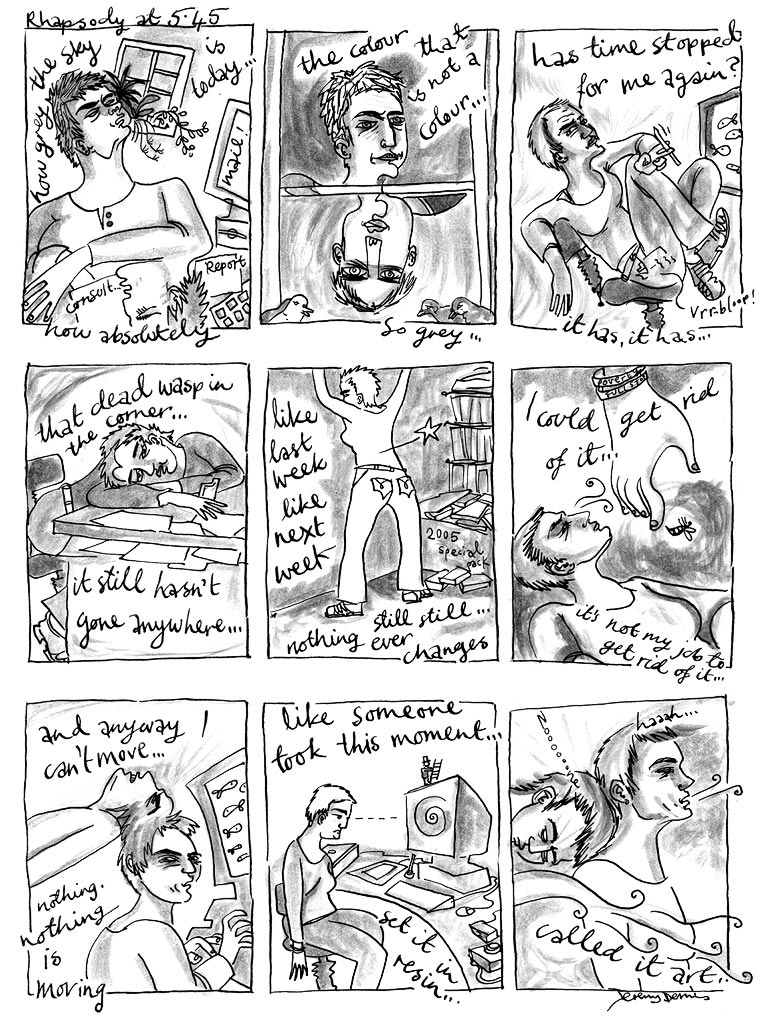 Rhapsody at 5.45
how grey
the sky
is
today...
mail!
Report
consult...
how absolutely
the colour that
is not a
colour...
So grey...
has time stopped
for me again?
Vrr.bloop!
it has, it has...
that dead wasp in
the corner...
it still hasn't
gone anywhere...
like
last
week
like
next
week
2005
special
pack
still still...
nothing ever
changes
I could get rid
of it...
it's not my job to
get rid of it...
and anyway I
can't move...
nothing.
nothing
is
moving
like someone
took this moment...
set it in
resin...
haaah...
called it art..
Jeremy Dennis